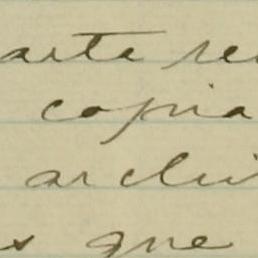 arta re
copia
archi
s que